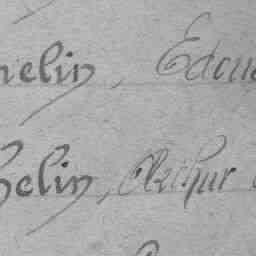 helin, Edou
helin, Arthur